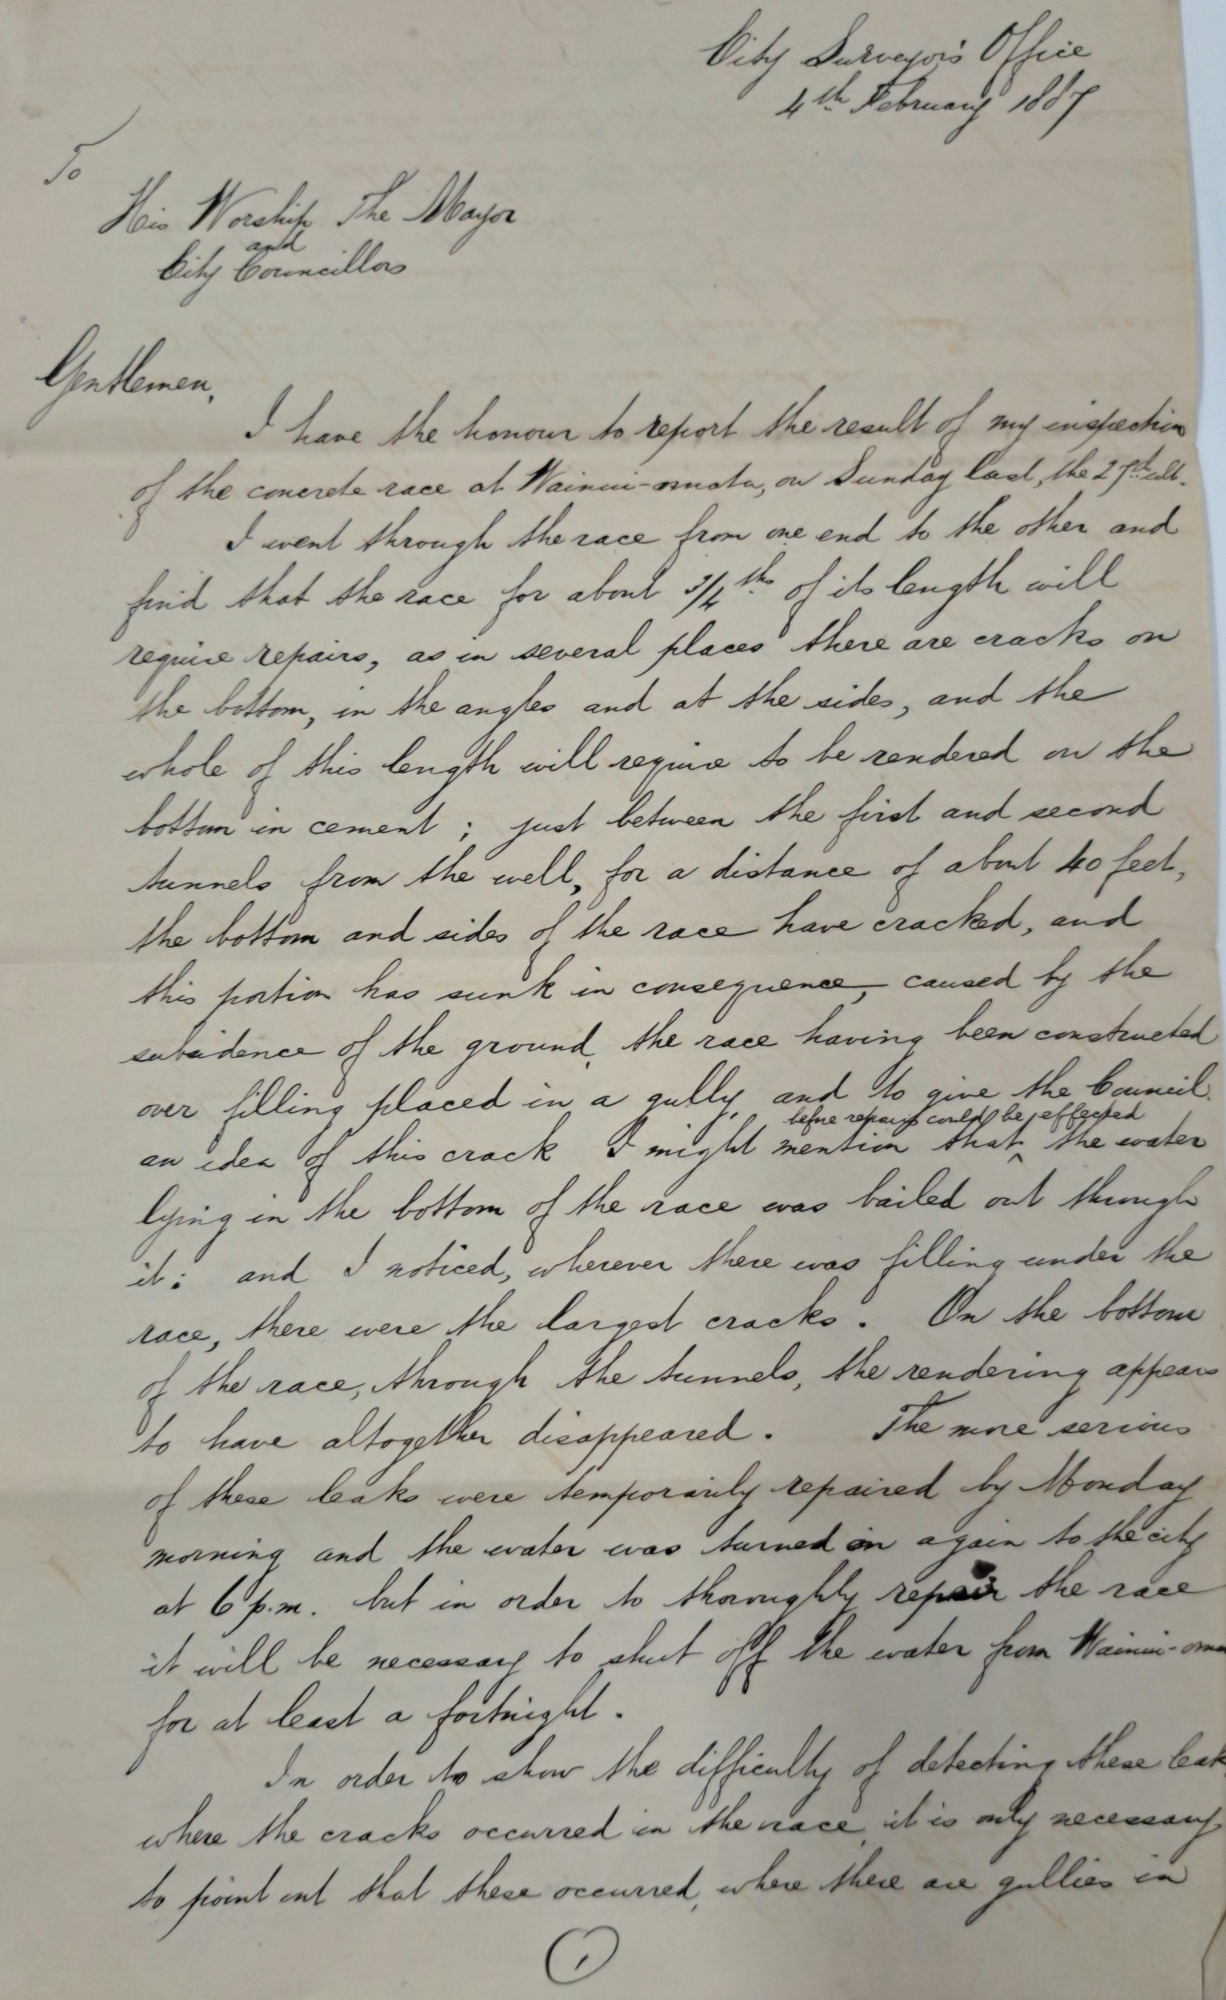 City Surveyor's Office
4th February 1887
To
His Worship The Mayor
and
City Councillors
Gentlemen,
I have the honour to report the result of my inspection
of the concrete race at Wainui-omata, on Sunday last, the 27th ult.
I went through the race from one end to the other and
find that the race for about 3/4ths of its length will
require repairs, as in several places there are cracks on
the bottom, in the angles and at the sides, and the
whole of this length will require to be rendered on the
bottom in cement; just between the first and second
tunnels from the well, for a distance of about 40 feet,
the bottom and sides of the race have cracked, and
this portion has sunk in consequence, caused by the
subsidence of the ground, the race having been constructed
over filling placed in a gully, and to give the Council
before repairs could be effected
an idea of this crack I might mention that ^ the water
lying in the bottom of the race was bailed out through
it: and I noticed, wherever there was filling under the
race, there were the largest cracks. On the bottom
of the race, through the tunnels, the rendering appears
to have altogether disappeared. The more serious
of these leaks were temporarily repaired by Monday
morning and the water was turned on again to the city
at 6 p.m. but in order to thoroughly repair the race
it will be necessary to shut off the water from Wainui-oma
for at least a fortnight.
In order to show the difficulty of detecting these leak
where the cracks occurred in the race, it is only necessary
to point out that these occurred, where there are gullies in
1